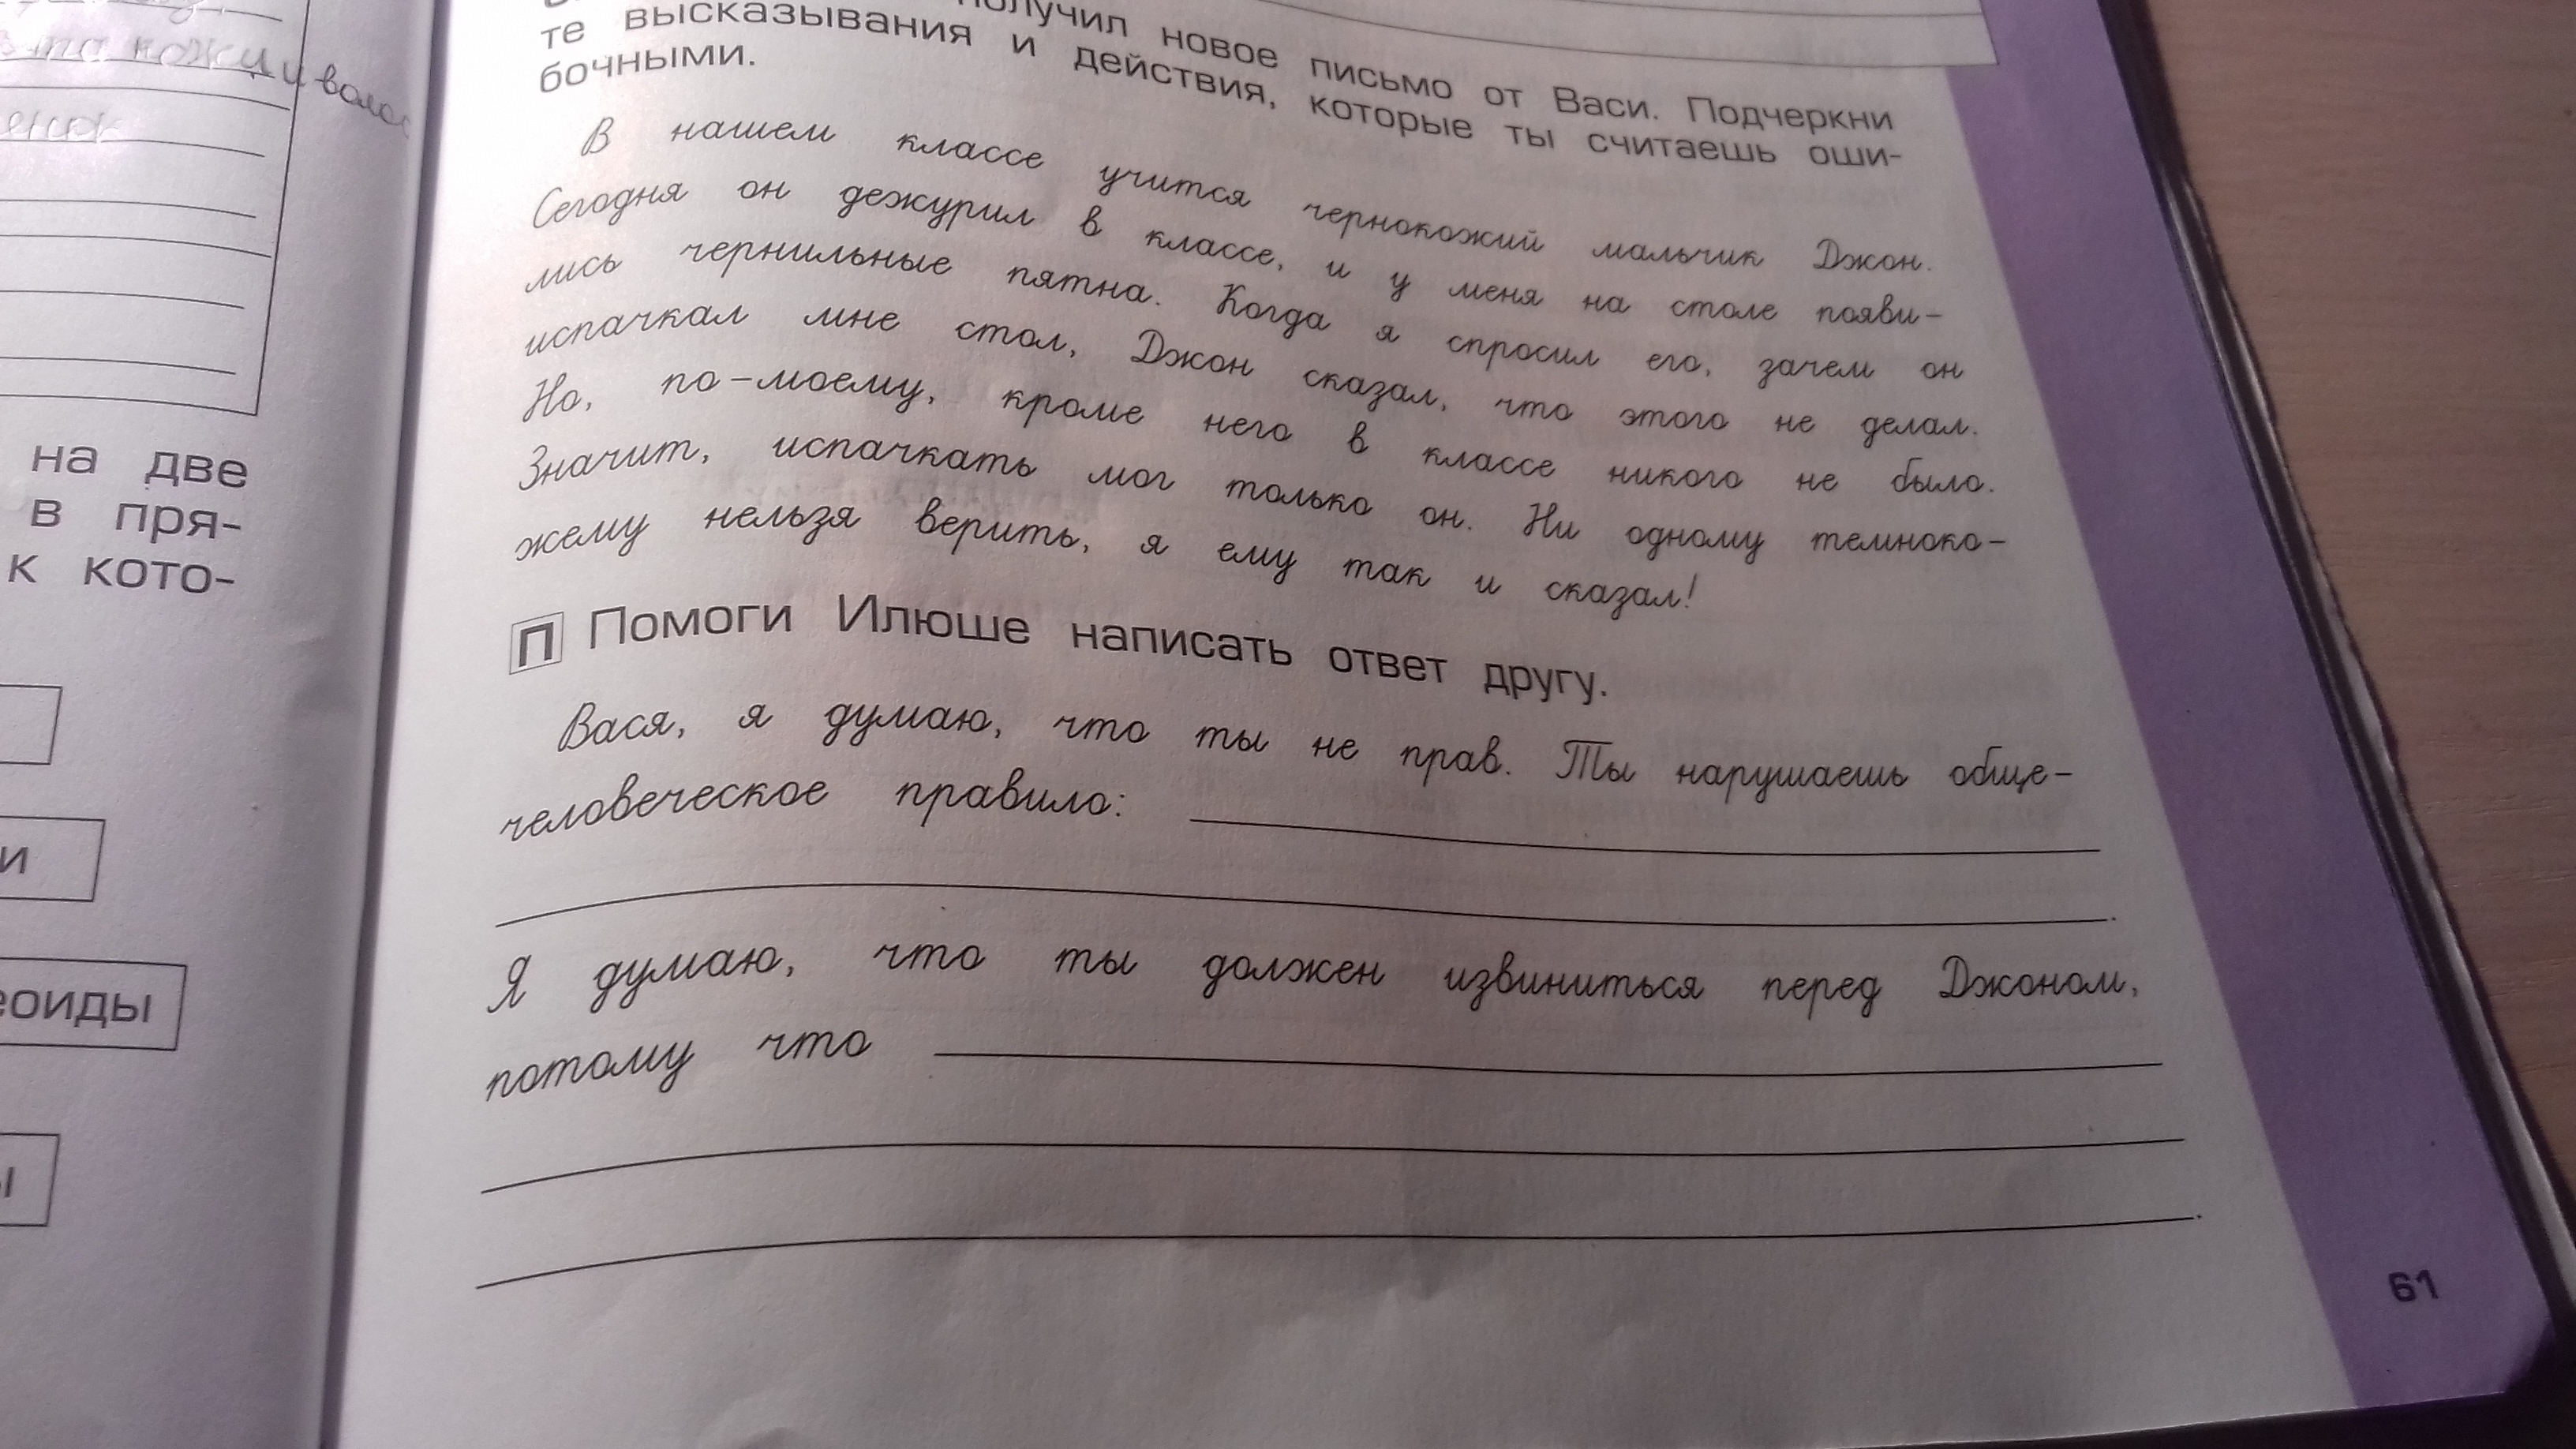 та кожи и волос
на две
в пря-
к кото-
и
еоиды
ы
получил новое письмо от Васи. Подчеркни
те высказывания и действия, которые ты считаешь оши-
бочными.
В нашем классе учится чернокожий мальчик Джон.
Сегодня он дежурил в классе, и у меня на столе появи-
лись чернильные пятна. Когда я спросил его, зачем он
испачкал мне стол, Джон сказал, что этого не делал.
Но, по-моему, кроме него в классе никого не было.
Значит, испачкать мог только он. Ни одному темноко-
жему нельзя верить, я ему так и сказал!
П Помоги Илюше написать ответ другу.
Вася, я думаю, что ты не прав. Ты нарушаешь обще-
человеческое правило:
Я думаю, что ты должен извиниться перед Джоном,
потому что
61